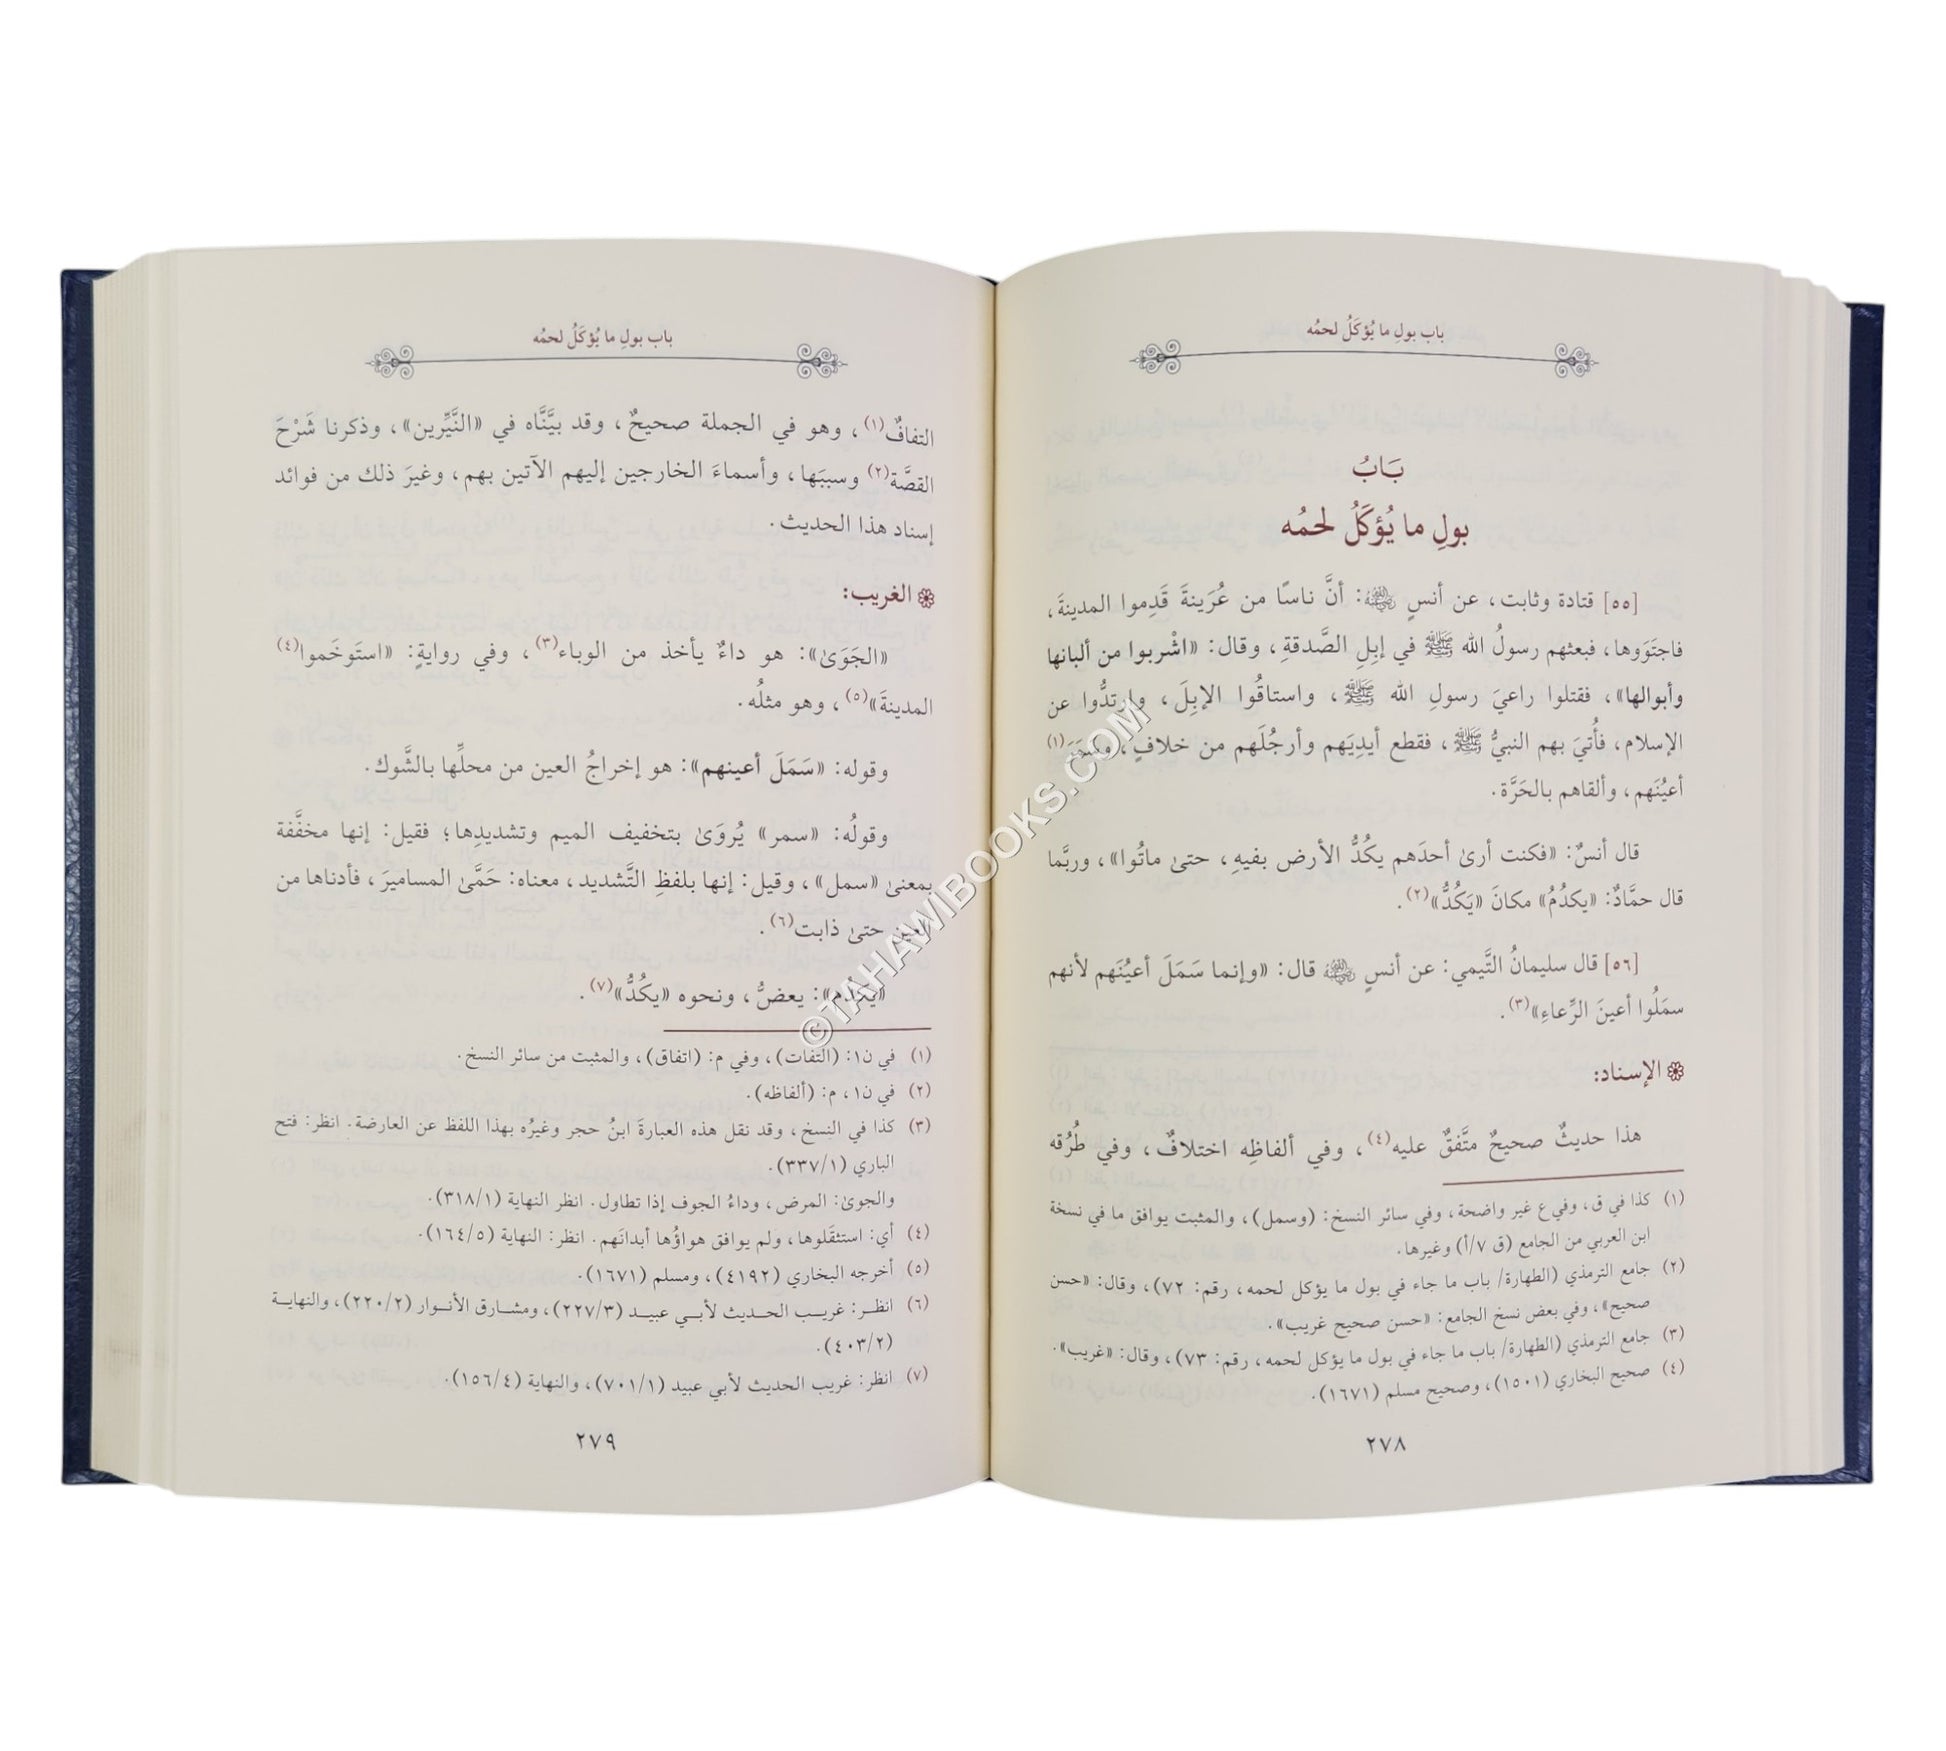 باب بولِ ما يُؤكَلُ لحمُه
بَابُ
بولِ ما يُؤكَلُ لحمُه
[٥٥] قتادة وثابت، عن أنسٍ رضي الله عنه: أنَّ ناسًا من عُرَينةَ قَدِموا المدينةَ،
فاجتَوَوها، فبعثهم رسولُ الله ﷺ في إبِلِ الصَّدقةِ، وقال: «اشْربوا من ألبانها
وأبوالها»، فقتلوا راعيَ رسولِ الله ﷺ، واستاقُوا الإبِلَ، وارتدُّوا عن
الإسلام، فأُتيَ بهم النبيُّ ﷺ، فقطع أيديَهم وأرجُلَهم من خلافٍ، وسَمَرَ(١)
أعيُنَهم، وألقاهم بالحَرَّة.
قال أنسٌ: «فكنت أرىٰ أحدَهم يكُدُّ الأرض بفيهِ، حتىٰ ماتُوا»، وربَّما
قال حمَّادٌ: «يكدُمُ» مكانَ «يَكُدُّ»(٢).
[٥٦] قال سليمانُ التَّيمي: عن أنسٍ رضي الله عنه قال: «وإنما سَمَلَ أعيُنَهم لأنهم
سمَلُوا أعينَ الرِّعاءِ»(٣).
الإسناد:
هذا حديثٌ صحيحٌ متَّفقٌ عليه(٤)، وفي ألفاظِه اختلافٌ، وفي طُرُقه
(١) كذا في ق، وفي ع غير واضحة، وفي سائر النسخ: (وسمل)، والمثبت يوافق ما في نسخة
ابن العربي من الجامع (ق ٧/أ) وغيرها.
(٢) جامع الترمذي (الطهارة/ باب ما جاء في بول ما يؤكل لحمه، رقم: ٧٢)، وقال: «حسن
صحيح»، وفي بعض نسخ الجامع: «حسن صحيح غريب».
(٣) جامع الترمذي (الطهارة/ باب ما جاء في بول ما يؤكل لحمه، رقم: ٧٣)، وقال: «غريب».
(٤) صحيح البخاري (١٥٠١)، وصحيح مسلم (١٦٧١).
٢٧٨
باب بولِ ما يُؤكَلُ لحمُه
التفافٌ(١)، وهو في الجملة صحيحٌ، وقد بيَّنَّاه في «النَّيِّرين»، وذكرنا شَرْحَ
القصَّة(٢) وسببَها، وأسماءَ الخارجين إليهم الآتين بهم، وغيرَ ذلك من فوائد
إسناد هذا الحديث.
الغريب:
«الجَوَىٰ»: هو داءٌ يأخذ من الوباء(٣)، وفي روايةٍ: «استَوخَموا(٤)
المدينةَ»(٥)، وهو مثلُه.
وقوله: «سَمَلَ أعينهم»: هو إخراجُ العين من محلِّها بالشَّوك.
وقولُه: «سمر» يُروَىٰ بتخفيف الميم وتشديدِها؛ فقيل: إنها مخفَّفة
بمعنىٰ «سمل»، وقيل: إنها بلفظِ التَّشديد، معناه: حَمَّىٰ المساميرَ، فأدناها من
العين حتىٰ ذابت(٦).
«يكدُم»: يعضُّ، ونحوه «يكُدُّ»(٧).
(١) في ن١: (التفات)، وفي م: (اتفاق)، والمثبت من سائر النسخ.
(٢) في ن١، م: (ألفاظه).
(٣) كذا في النسخ، وقد نقل هذه العبارةَ ابنُ حجر وغيرُه بهذا اللفظ عن العارضة. انظر: فتح
الباري (٣٣٧/١).
والجوىٰ: المرض، وداءُ الجوف إذا تطاول. انظر النهاية (٣١٨/١).
(٤) أي: استثقَلوها، ولم يوافق هواؤُها أبدانَهم. انظر: النهاية (١٦٤/٥).
(٥) أخرجه البخاري (٤١٩٢)، ومسلم (١٦٧١).
(٦) انظر: غريب الحديث لأبي عبيد (٢٢٧/٣)، ومشارق الأنوار (٢٢٠/٢)، والنهاية
(٤٠٣/٢).
(٧) انظر: غريب الحديث لأبي عبيد (٧٠١/١)، والنهاية (١٥٦/٤).
٢٧٩
©TAHAWIBOOKS.COM